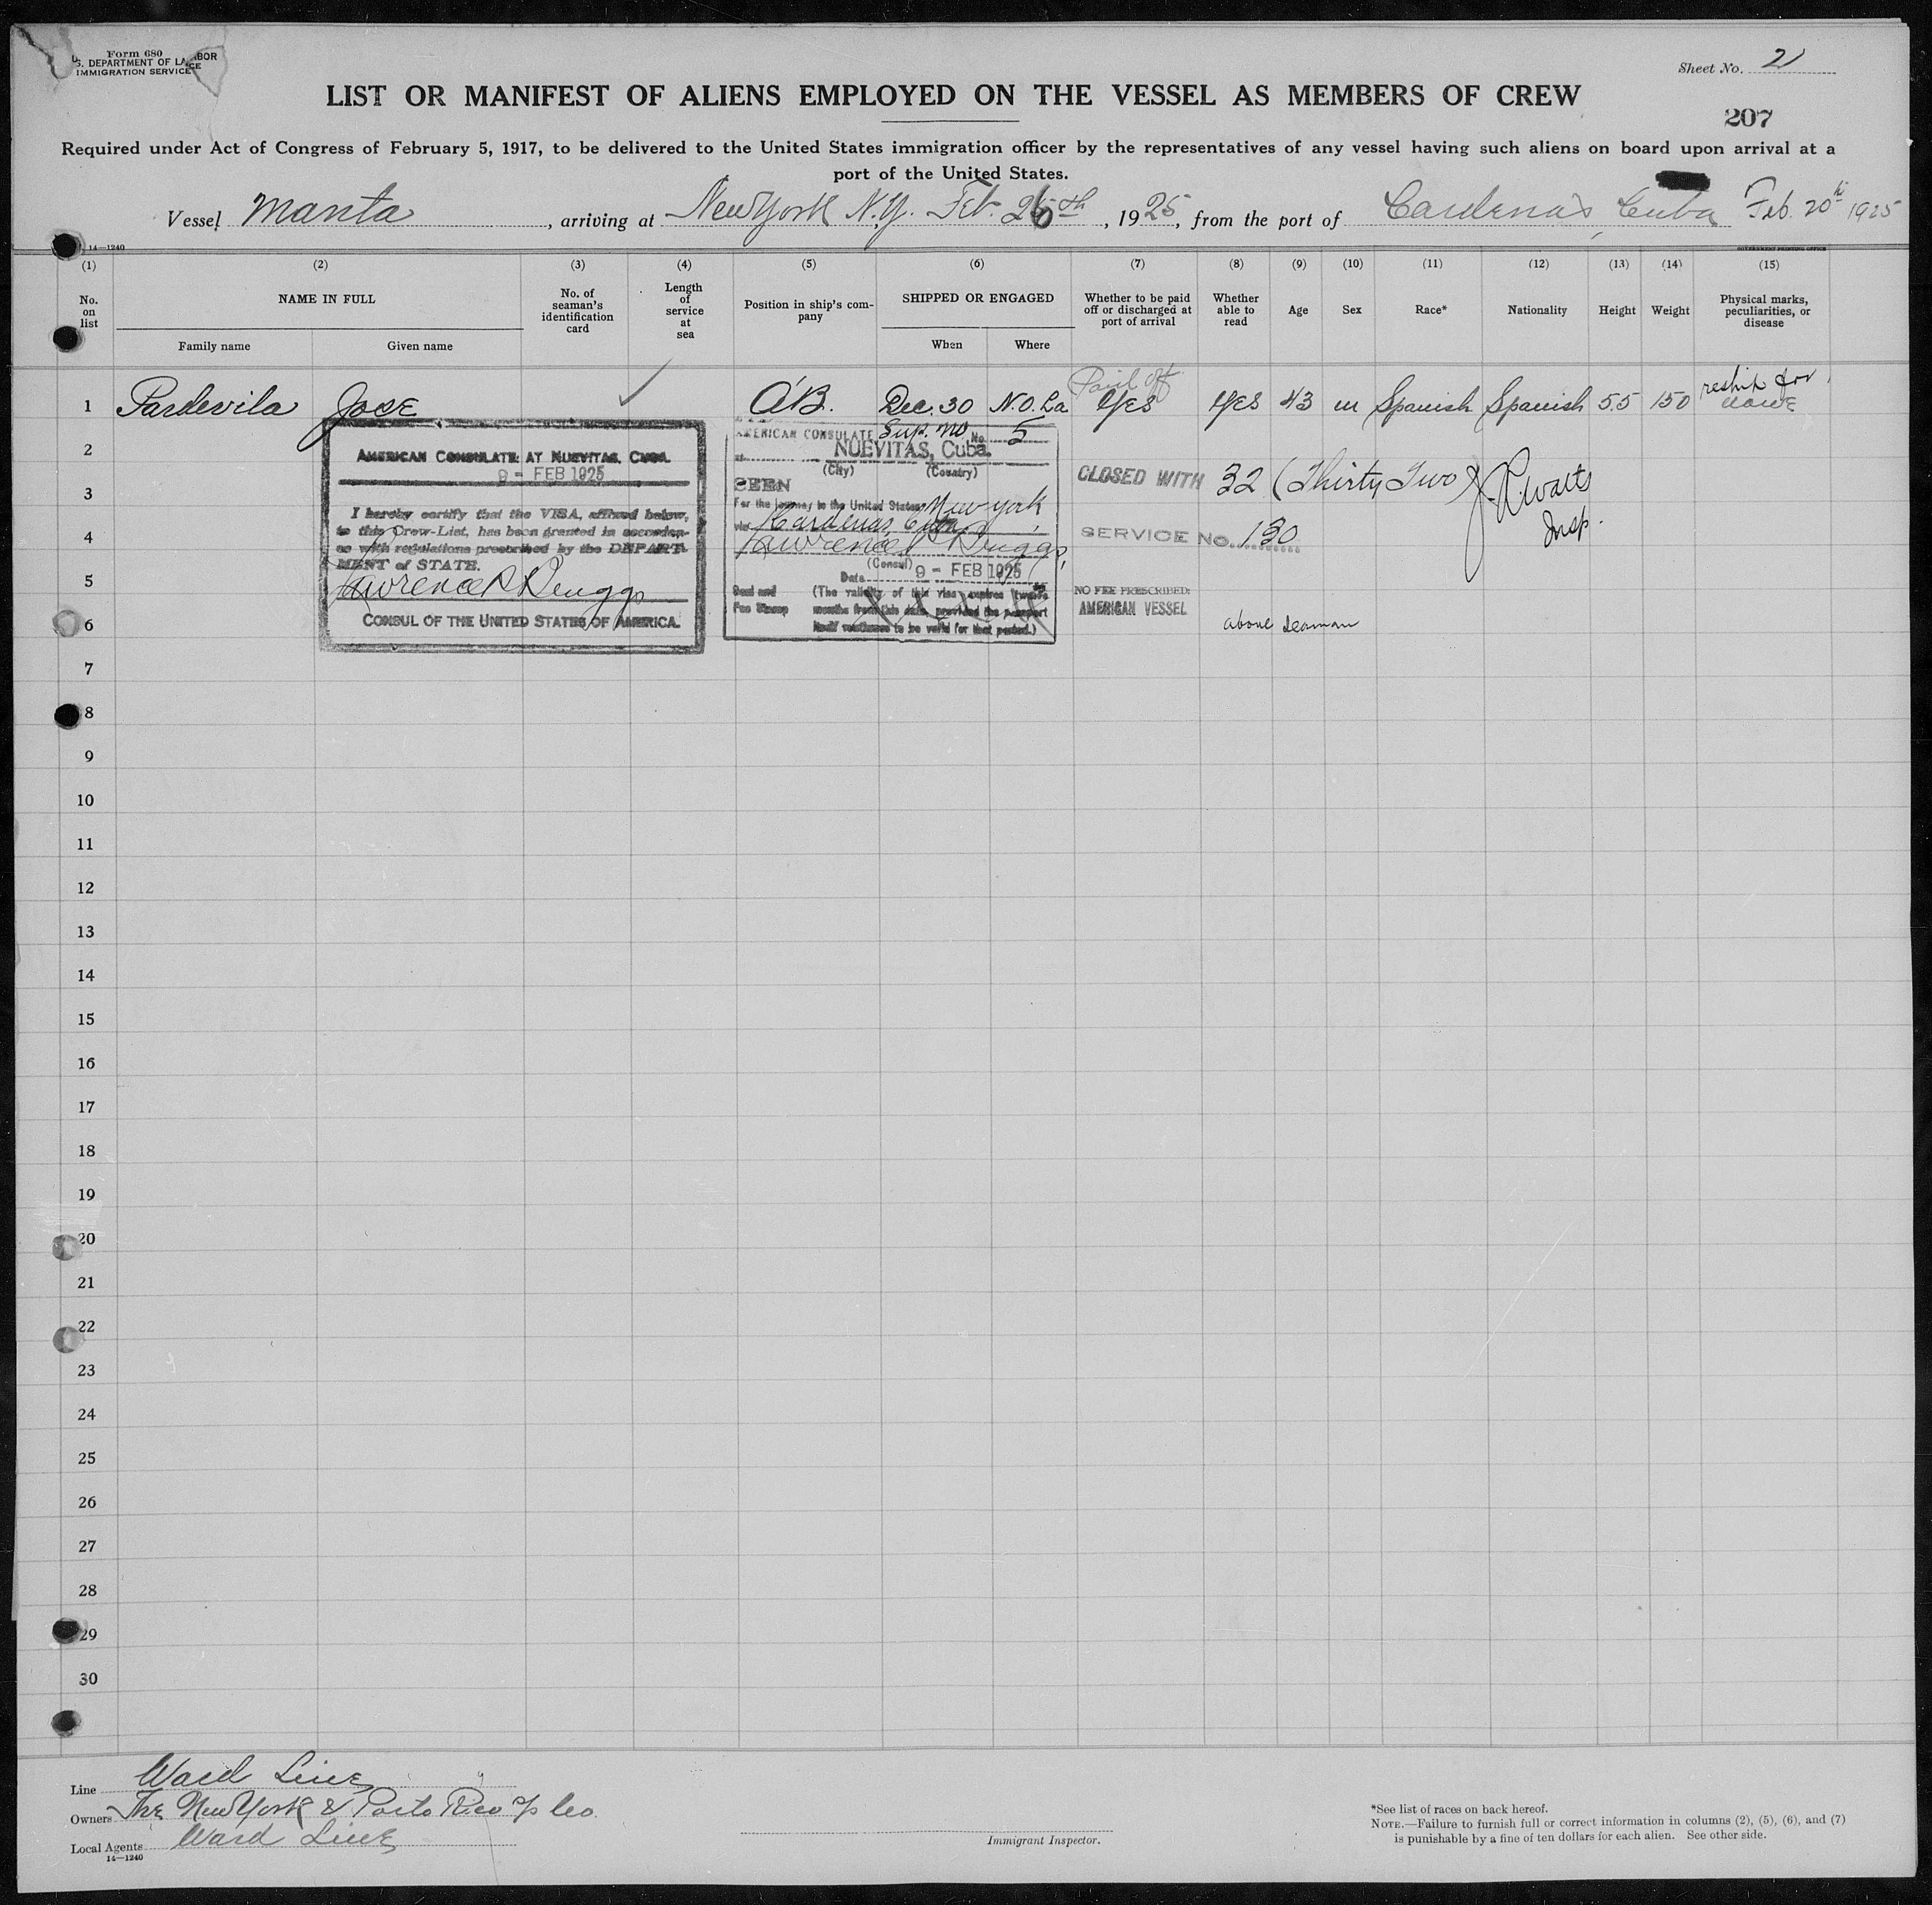 Form 680
U.S. DEPARTMENT OF LABOR
IMMIGRATION SERVICE
Sheet No. 2
LIST OR MANIFEST OF ALIENS EMPLOYED ON THE VESSEL AS MEMBERS OF CREW
207
Required under Act of Congress of February 5, 1917, to be delivered to the United States immigration officer by the representatives of any vessel having such aliens on board upon arrival at a
port of the United States.
Vessel Manta, arriving at New York N.Y. Feb. 26th, 1925, from the port of Cardenas, Cuba Feb. 20th 1925
14—1240
GOVERNMENT PRINTING OFFICE
(1) (2) (3) (4) (5) (6) (7) (8) (9) (10) (11) (12) (13) (14) (15)
No. on list
NAME IN FULL
Family name
Given name
No. of seaman's identification card
Length of service at sea
Position in ship's company
SHIPPED OR ENGAGED
When
Where
Whether to be paid off or discharged at port of arrival
Whether able to read
Age
Sex
Race*
Nationality
Height
Weight
Physical marks, peculiarities, or disease
Paid off
reship for
1 Pardevila Jose A.B. Dec. 30 N.O. La Yes Yes 43 m Spanish Spanish 5.5 150 none
AMERICAN CONSULATE AT NUEVITAS, CUBA.
9 - FEB 1925
I hereby certify that the VISA, affixed below,
to this Crew-List, has been granted in accordan-
ce with regulations prescribed by the DEPART-
MENT of STATE.
Lawrence P. Briggs
CONSUL OF THE UNITED STATES OF AMERICA.
AMERICAN CONSULATE Sup. No. 5
at NUEVITAS, Cuba.
(City) (Country)
SEEN
For the journey to the United States New York
via Cardenas, Cuba
Lawrence P. Briggs
(Consul)
Date 9 - FEB 1925
Seal and Fee Stamp
(The validity of this visa expires twelve
months from this date, provided the passport
itself continues to be valid for that period.)
CLOSED WITH 32 (Thirty Two)
J. R. Watts
Insp.
SERVICE No. 130
NO FEE PRESCRIBED:
AMERICAN VESSEL
above seaman
2
3
4
5
6
7
8
9
10
11
12
13
14
15
16
17
18
19
20
21
22
23
24
25
26
27
28
29
30
Line Ward Line
Owners The New York & Porto Rico S/S Co.
Local Agents Ward Line
14—1240
Immigrant Inspector.
*See list of races on back hereof.
NOTE.—Failure to furnish full or correct information in columns (2), (5), (6), and (7)
is punishable by a fine of ten dollars for each alien. See other side.